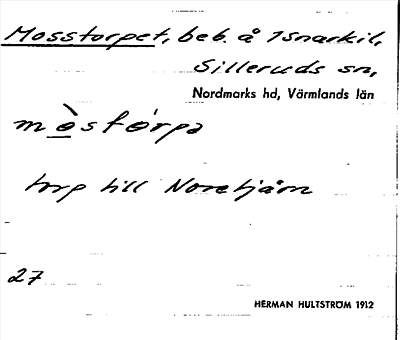 Mosstorpet, beb. å Isnarkil,
Silleruds sn,
Nordmarks hd, Värmlands län
mòstórpə
torp till Noretjärn
27
HERMAN HULTSTRÖM 1912